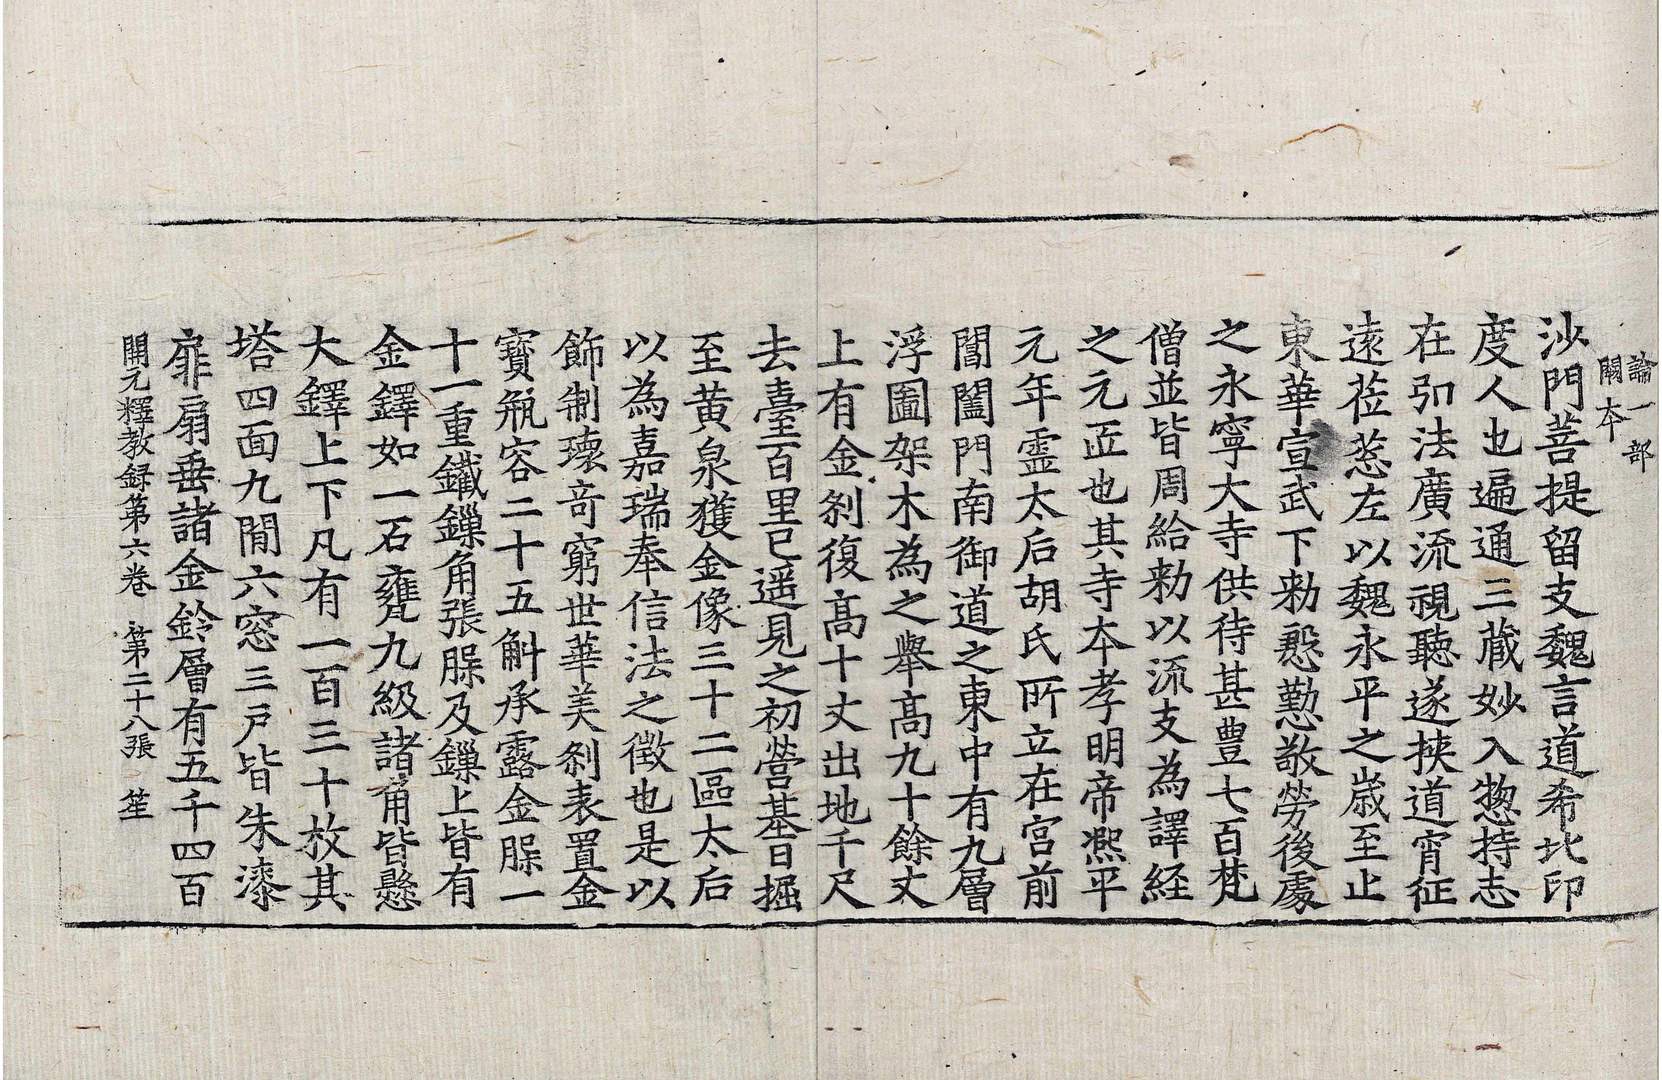 論一部
闕本
沙門菩提留支魏言道希北印
度人也遍通三藏妙入惣持志
在弘法廣流視聽遂挾道宵征
遠莅葱左以魏永平之歲至止
東華宣武下勑慇懃敬勞後處
之永寧大寺供待甚豊七百梵
僧並皆周給勑以流支為譯経
之元匠也其寺本孝明帝凞平
元年霊太后胡氏所立在宮前
閶闔門南御道之東中有九層
浮圖架木為之舉髙九十餘丈
上有金剎復髙十丈出地千尺
去臺百里已遥見之初營基日掘
至黄泉獲金像三十二區太后
以為嘉瑞奉信法之徴也是以
飾制瓌竒窮世華美剎表置金
寶瓶容二十五斛承露金槃一
十一重鐵鏁角張槃及鏁上皆有
金鐸如一石甕九級諸角皆懸
大鐸上下凡有一百三十枚其
塔四面九間六窓三戸皆朱漆
扉扇垂諸金鈴層有五千四百
開元釋教録第六巻　第二十八張　笙